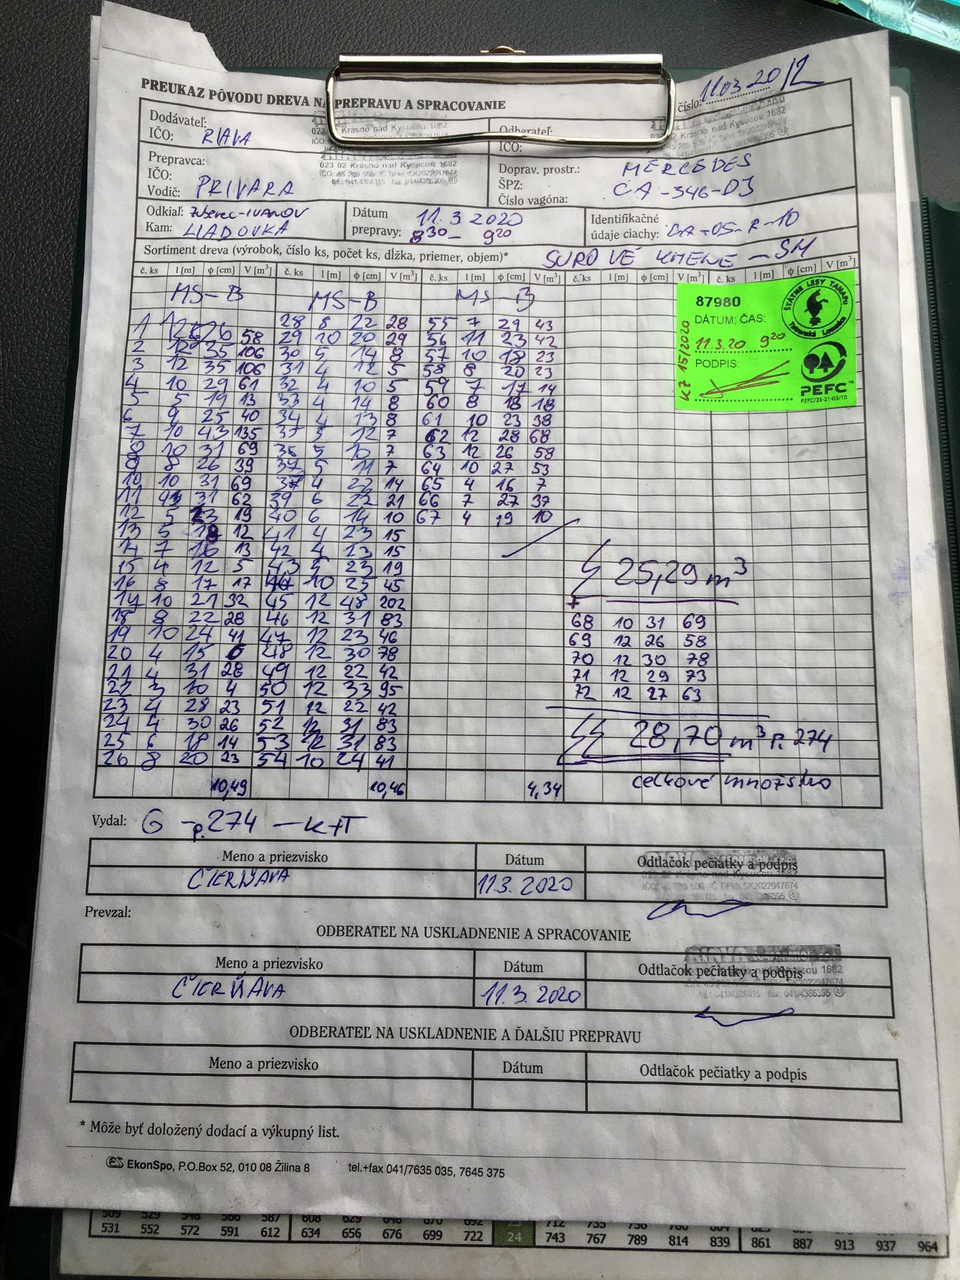 PREUKAZ PÔVODU DREVA NA PREPRAVU A SPRACOVANIE číslo: 11.03.20/2
Dodávateľ: Odberateľ:
IČO: RIAVA IČO:
Krásno nad Kysucou 1682
Prepravca: Doprav. prostr.: MERCEDES
023 02 Krásno nad Kysucou 1682
IČO: ŠPZ: CA-346-DJ
Vodič: PRIVARA Číslo vagóna:
Odkiaľ: Zuberec-IVANOV Dátum 11.3 2020 Identifikačné
Kam: LIADOVKA prepravy: 830 - 920 údaje ciachy: CA-05-R-10
Sortiment dreva (výrobok, číslo ks, počet ks, dĺžka, priemer, objem)* SUROVÉ KMENE - SM
č. ks l [m] ϕ [cm] V [m³] č. ks l [m] ϕ [cm] V [m³] č. ks l [m] ϕ [cm] V [m³] č. ks l [m] ϕ [cm] V [m³] č. ks l [m] ϕ [cm] V [m³]
MS-B MS-B MS-B
87980
ŠTÁTNE LESY TANAPU
Tatranská Lomnica
DÁTUM: ČAS:
11.3.20 920
PODPIS:
KZ 15/2020
PEFC
1 26 58 28 8 22 28 55 7 29 43
2 12 35 106 29 10 20 29 56 11 23 42
3 12 35 106 30 5 14 8 57 10 18 23
4 10 29 61 31 4 12 5 58 8 20 23
5 5 19 13 32 4 10 5 59 7 17 14
6 9 25 40 33 4 14 8 60 8 18 18
7 10 43 135 34 4 13 8 61 10 23 38
8 10 31 69 5 12 7 62 12 28 68
8 26 39 36 5 10 7 63 12 26 58
10 10 31 69 5 11 7 64 10 27 53
11 31 62 4 22 14 65 4 16 7
12 5 23 19 39 6 22 21 66 7 27 37
13 5 18 12 40 6 14 10 67 4 19 10
14 7 16 13 41 4 23 15
15 4 12 5 42 4 23 15
16 8 17 17 43 5 23 19
17 10 21 32 10 25 45
18 8 22 28 45 12 48 202
19 10 24 41 46 12 31 83
20 4 15 6 47 12 23 46
21 4 31 28 48 12 30 78
22 3 10 4 49 12 22 42
23 4 28 23 50 12 33 95
24 4 30 26 51 12 22 42
25 6 18 14 52 12 31 83
26 8 20 23 53 12 31 83
54 10 24 41
25,29 m³
+
68 10 31 69
69 12 26 58
70 12 30 78
71 12 29 73
72 12 27 63
28,70 m³ P. 274
celkové množstvo
10,49 10,46 4,34
Vydal: G - p.274 - K+T
Meno a priezvisko Dátum Odtlačok pečiatky a podpis
ČIERŇAVA 11.3. 2020
Prevzal:
ODBERATEĽ NA USKLADNENIE A SPRACOVANIE
Meno a priezvisko Dátum Odtlačok pečiatky a podpis
ČIERŇAVA 11.3. 2020
ODBERATEĽ NA USKLADNENIE A ĎALŠIU PREPRAVU
Meno a priezvisko Dátum Odtlačok pečiatky a podpis
* Môže byť doložený dodací a výkupný list.
EkonSpo, P.O.Box 52, 010 08 Žilina 8 tel.+fax 041/7635 035, 7645 375
509 529 548 566 587 608 629 648 670 692 23 712 735 758 780 804
531 552 572 591 612 634 656 676 699 722 24 743 767 789 814 839 861 887 913 937 964